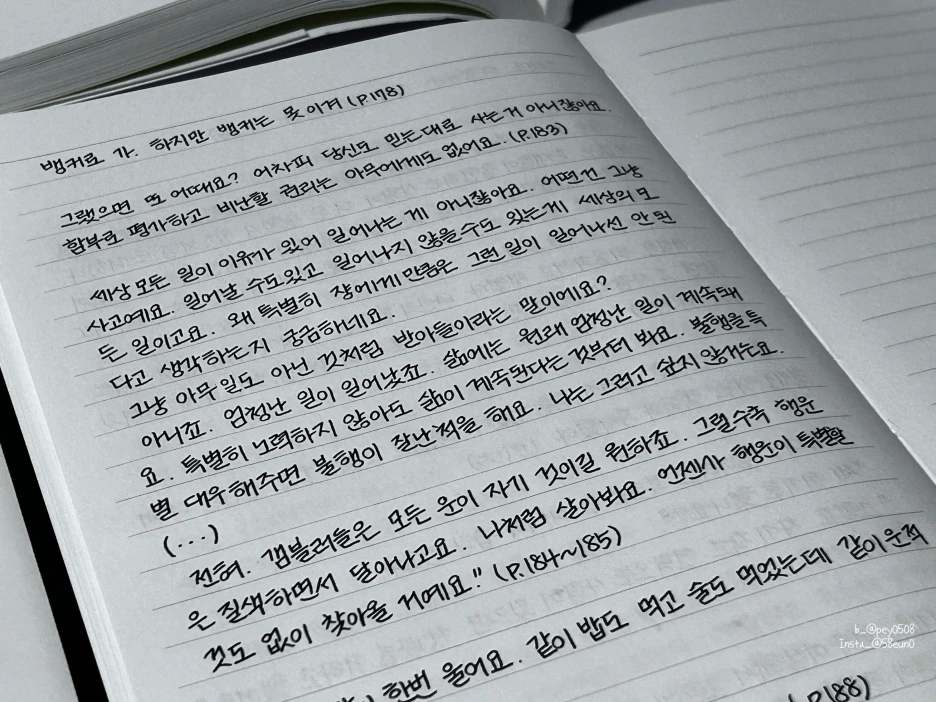 뱅커로 가. 하지만 뱅커는 못 이겨 (P.178)
그랬으면 또 어때요? 어차피 당신도 믿는대로 사는 거 아니잖아요.
함부로 평가하고 비난할 권리는 아무에게도 없어요. (P.183)
세상 모든 일이 이유가 있어 일어나는 게 아니잖아요. 어떤 건 그냥
사고예요. 일어날 수도 있고 일어나지 않을 수도 있는게 세상의 모
든 일이고요. 왜 특별히 쟝에게만큼은 그런 일이 일어나선 안 된
다고 생각하는지 궁금하네요.
그냥 아무 일도 아닌 것처럼 받아들이라는 말이에요?
아니죠. 엄청난 일이 일어났죠. 삶에는 원래 엄청난 일이 계속돼
요. 특별히 노력하지 않아도 삶이 계속된다는 것부터 봐요. 불행을 특
별 대우해주면 불행이 잘난 척을 해요. 나는 그러고 싶지 않거든요.
(...)
전혀. 갬블러들은 모든 운이 자기 것이길 원하죠. 그럴수록 행운
은 질색하면서 달아나고요. 나처럼 살아봐요. 언젠가 행운이 특별할
것도 없이 찾아올 거예요." (P.184~185)
한번 울어요. 같이 밥도 먹고 술도 먹었는데 같이 운 적
(P.188)
b_@pey0508
Insta_@58eun0